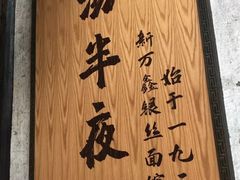 半夜
新万鑫银丝面馆
始于一九